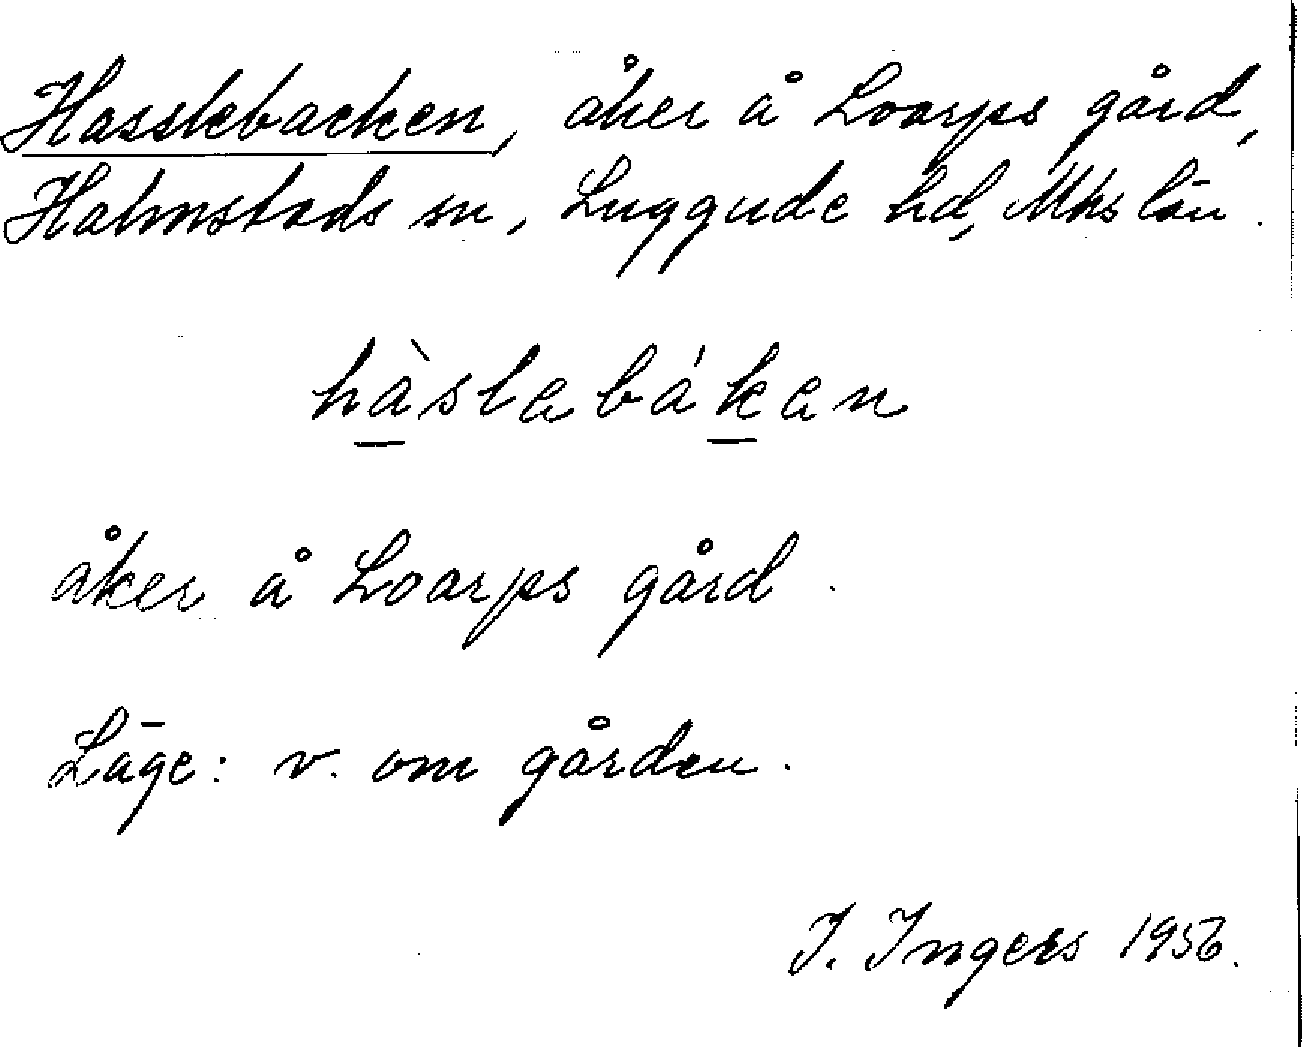 Hasslebacken, åker å Loarps gård,
Halmstads sn, Luggude hd, Mhs län.
hàslebákan
åker å Loarps gård.
Läge: v. om gården.
I. Ingers 1956.